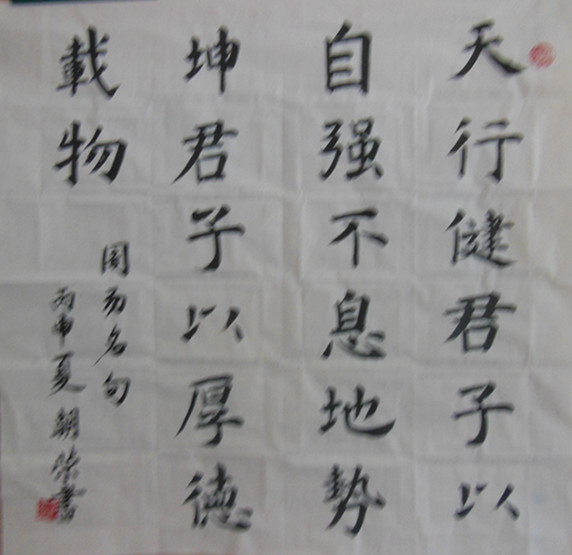 天行健君子以
自强不息地势
坤君子以厚德
載物
周易名句
丙申夏朝荣書